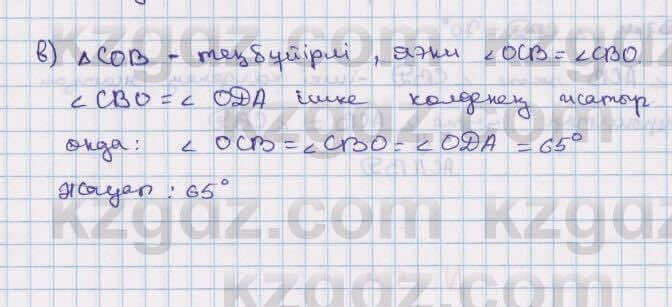 в) △COB - теңбүйірлі, яғни ∠OCB = ∠CBO.
∠CBO = ∠ODA ішке көлденең жатыр
онда: ∠OCB = ∠CBO = ∠ODA = 65°
Жауап: 65°
kzgdz.com kzgdz.com
kzgdz.com kzgdz.com
kzgdz.com kzgdz.com